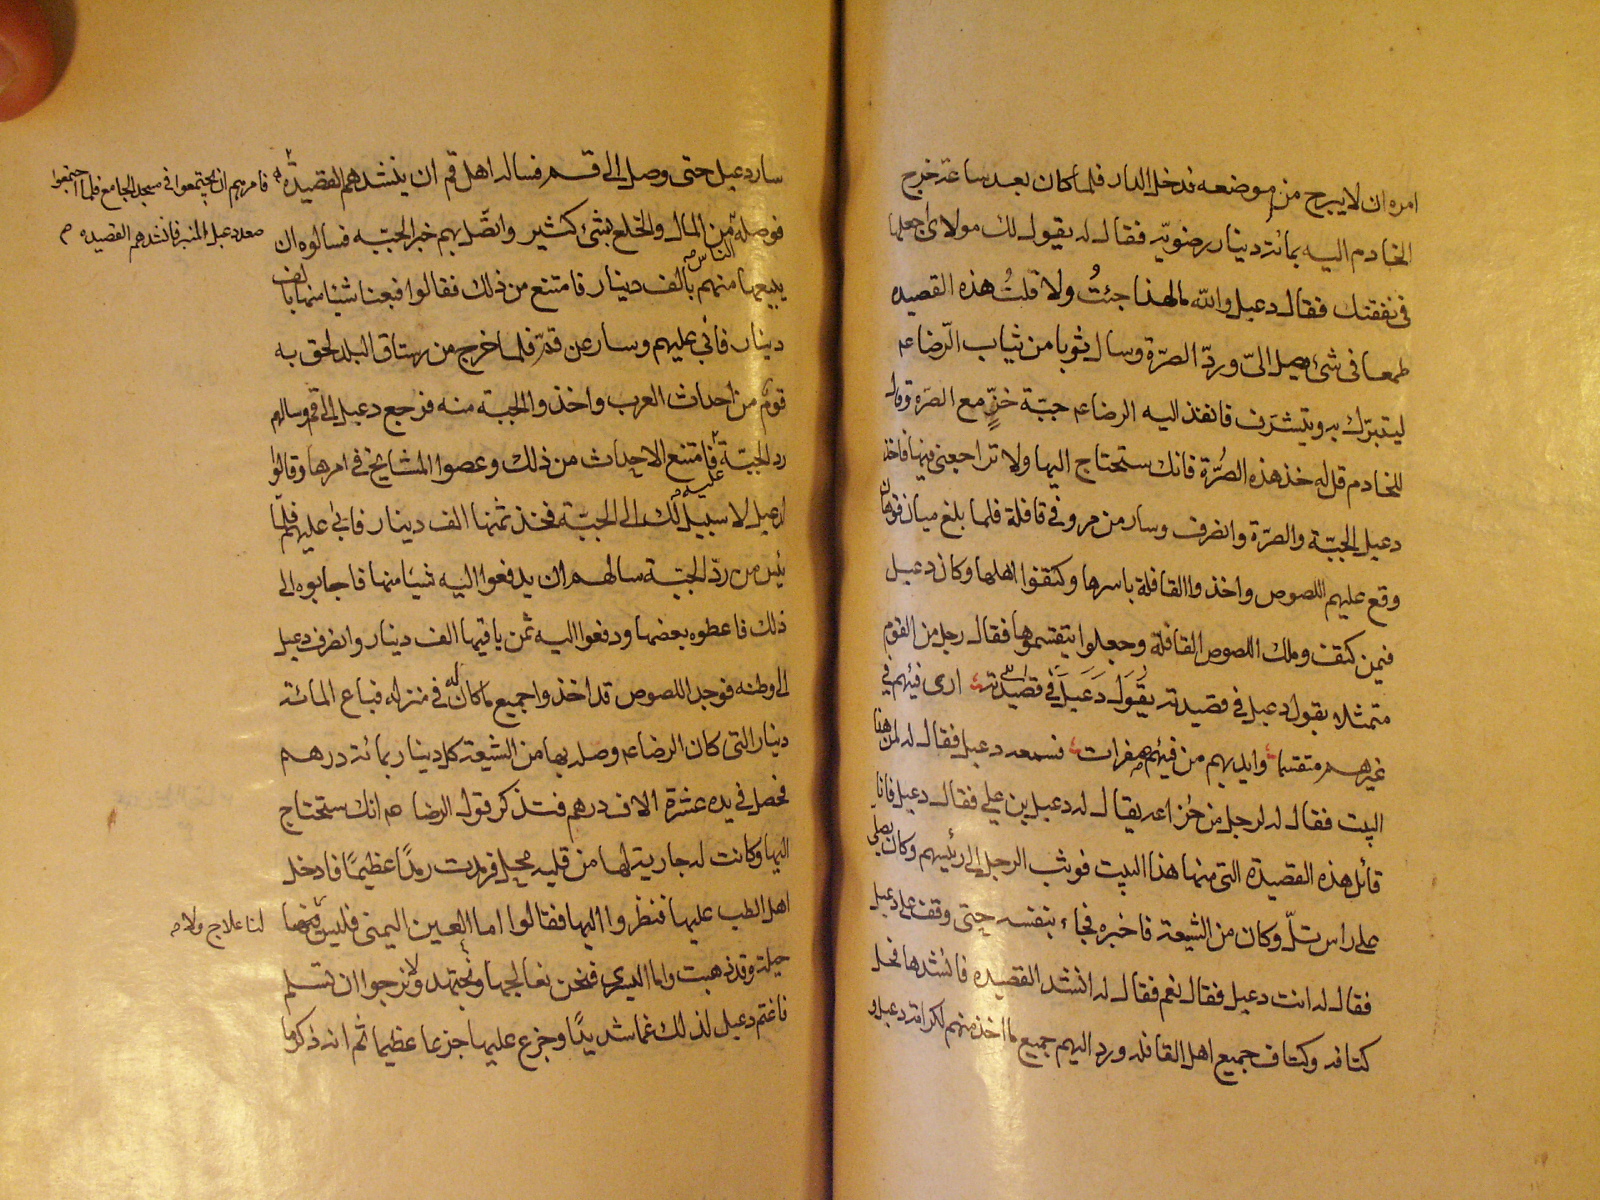 امره ان لا يبرح من موضعه فدخل الدار فلما كان بعد ساعة خرج
الخادم اليه بمائة دينار رضويّه فقال له يقول لك مولاى اجعلها
فى نفقتك فقال دعبل والله ما لهذا جئتُ ولا قلتُ هذه القصيده
طمعا فى شئ يصل الىّ وردّ الصرّة وسال ثوبا من ثياب الرّضا عم
ليتبرّك به ويتشرّف فانفذ اليه الرضا عم جبّة خزٍّ مع الصرّة وقال
للخادم قل له خذ هذه الصُّرّة فانك ستحتاج اليها ولا تراجعنى فيها فاخذ
دعبل الجبّة والصرّة وانصرف وسار من مرو فى قافلة فلما بلغ ميان قوهان
وقع عليهم اللصوص واخذوا القافلة باسرها وكتفوا اهلها وكان دعبل
فيمن كتف وملك اللصوص القافلة وجعلوا يتقسموها فقال رجل من القوم
متمثلا بقول دعبل فى قصيدته يقول دعبل فى قصيدته ارى فيئهم فى
غيرهم متقسما وايديهم من فيئهم صفرات فسمعه دعبل فقال له لمن هذا
البيت فقال له لرجل من خزاعه يقال له دعبل بن على فقال دعبل فانا
قائل هذه القصيدة التى منها هذا البيت فوثب الرجل الى رئيسهم وكان يصلى
على راس تلّ وكان من الشيعة فاخبره فجاء بنفسه حتى وقف على دعبل
فقال له انت دعبل فقال نعم فقال له انشد القصيده فانشدها فحل
كتافه وكتاف جميع اهل القافله ورد اليهم جميع ما اخذ منهم لكرامة دعبل و
سار دعبل حتى وصل الى قم فساله اهل قم ان ينشدهم القصيدة
فامرهم ان يجتمعوا فى مسجد الجامع فلما اجتمعوا
صعد دعبل المنبر فانشدهم القصيده
فوصله من المال والخلع بشئ كثير واتّصل بهم خبر الجبّه فسالوه ان
الناس
يبيعها منهم بالف دينار فامتنع من ذلك فقالوا فبعنا شيئا منها بالف
دينار فابى عليهم وسار عن قم فلما خرج من رستاق البلد لحق به
قوم من احداث العرب واخذوا الجبة منه فرجع دعبل الى قم وسالهم
رد الجبّة فامتنع الاحداث من ذلك وعصوا المشايخ فى امرها وقالوا
عليه
لدعبل لا سبيل لك الى الجبّة فخذ ثمنها الف دينار فابى عليهم فلمّا
يئس من ردّ الجبّة سالهم ان يدفعوا اليه شيئا منها فاجابوه الى
ذلك فاعطوه بعضها ودفعوا اليه ثمن باقيها الف دينار وانصرف دعبل
الى وطنه فوجد اللصوص قد اخذوا جميع ما كان له فى منزله فباع المائة
دينار التى كان الرضا عم وصله بها من الشيعة كل دينار بمائة درهم
فحصل فى يده عشرة الاف درهم فتذكر قول الرضا عم انك ستحتاج
اليها وكانت له جارية لها من قلبه محل فرمدت رمدًا عظيمًا فادخل
اهل الطب عليها فنظروا اليها فقالوا اما العين اليمنى فليس فيها
لنا علاج ولا
حيلة وقد ذهبت واما اليسرى فنحن نعالجها ونجتهد ونرجوا ان تسلم
فاغتم دعبل لذلك غما شديدًا وجزع عليها جزعا عظيما ثم انه ذكر ما